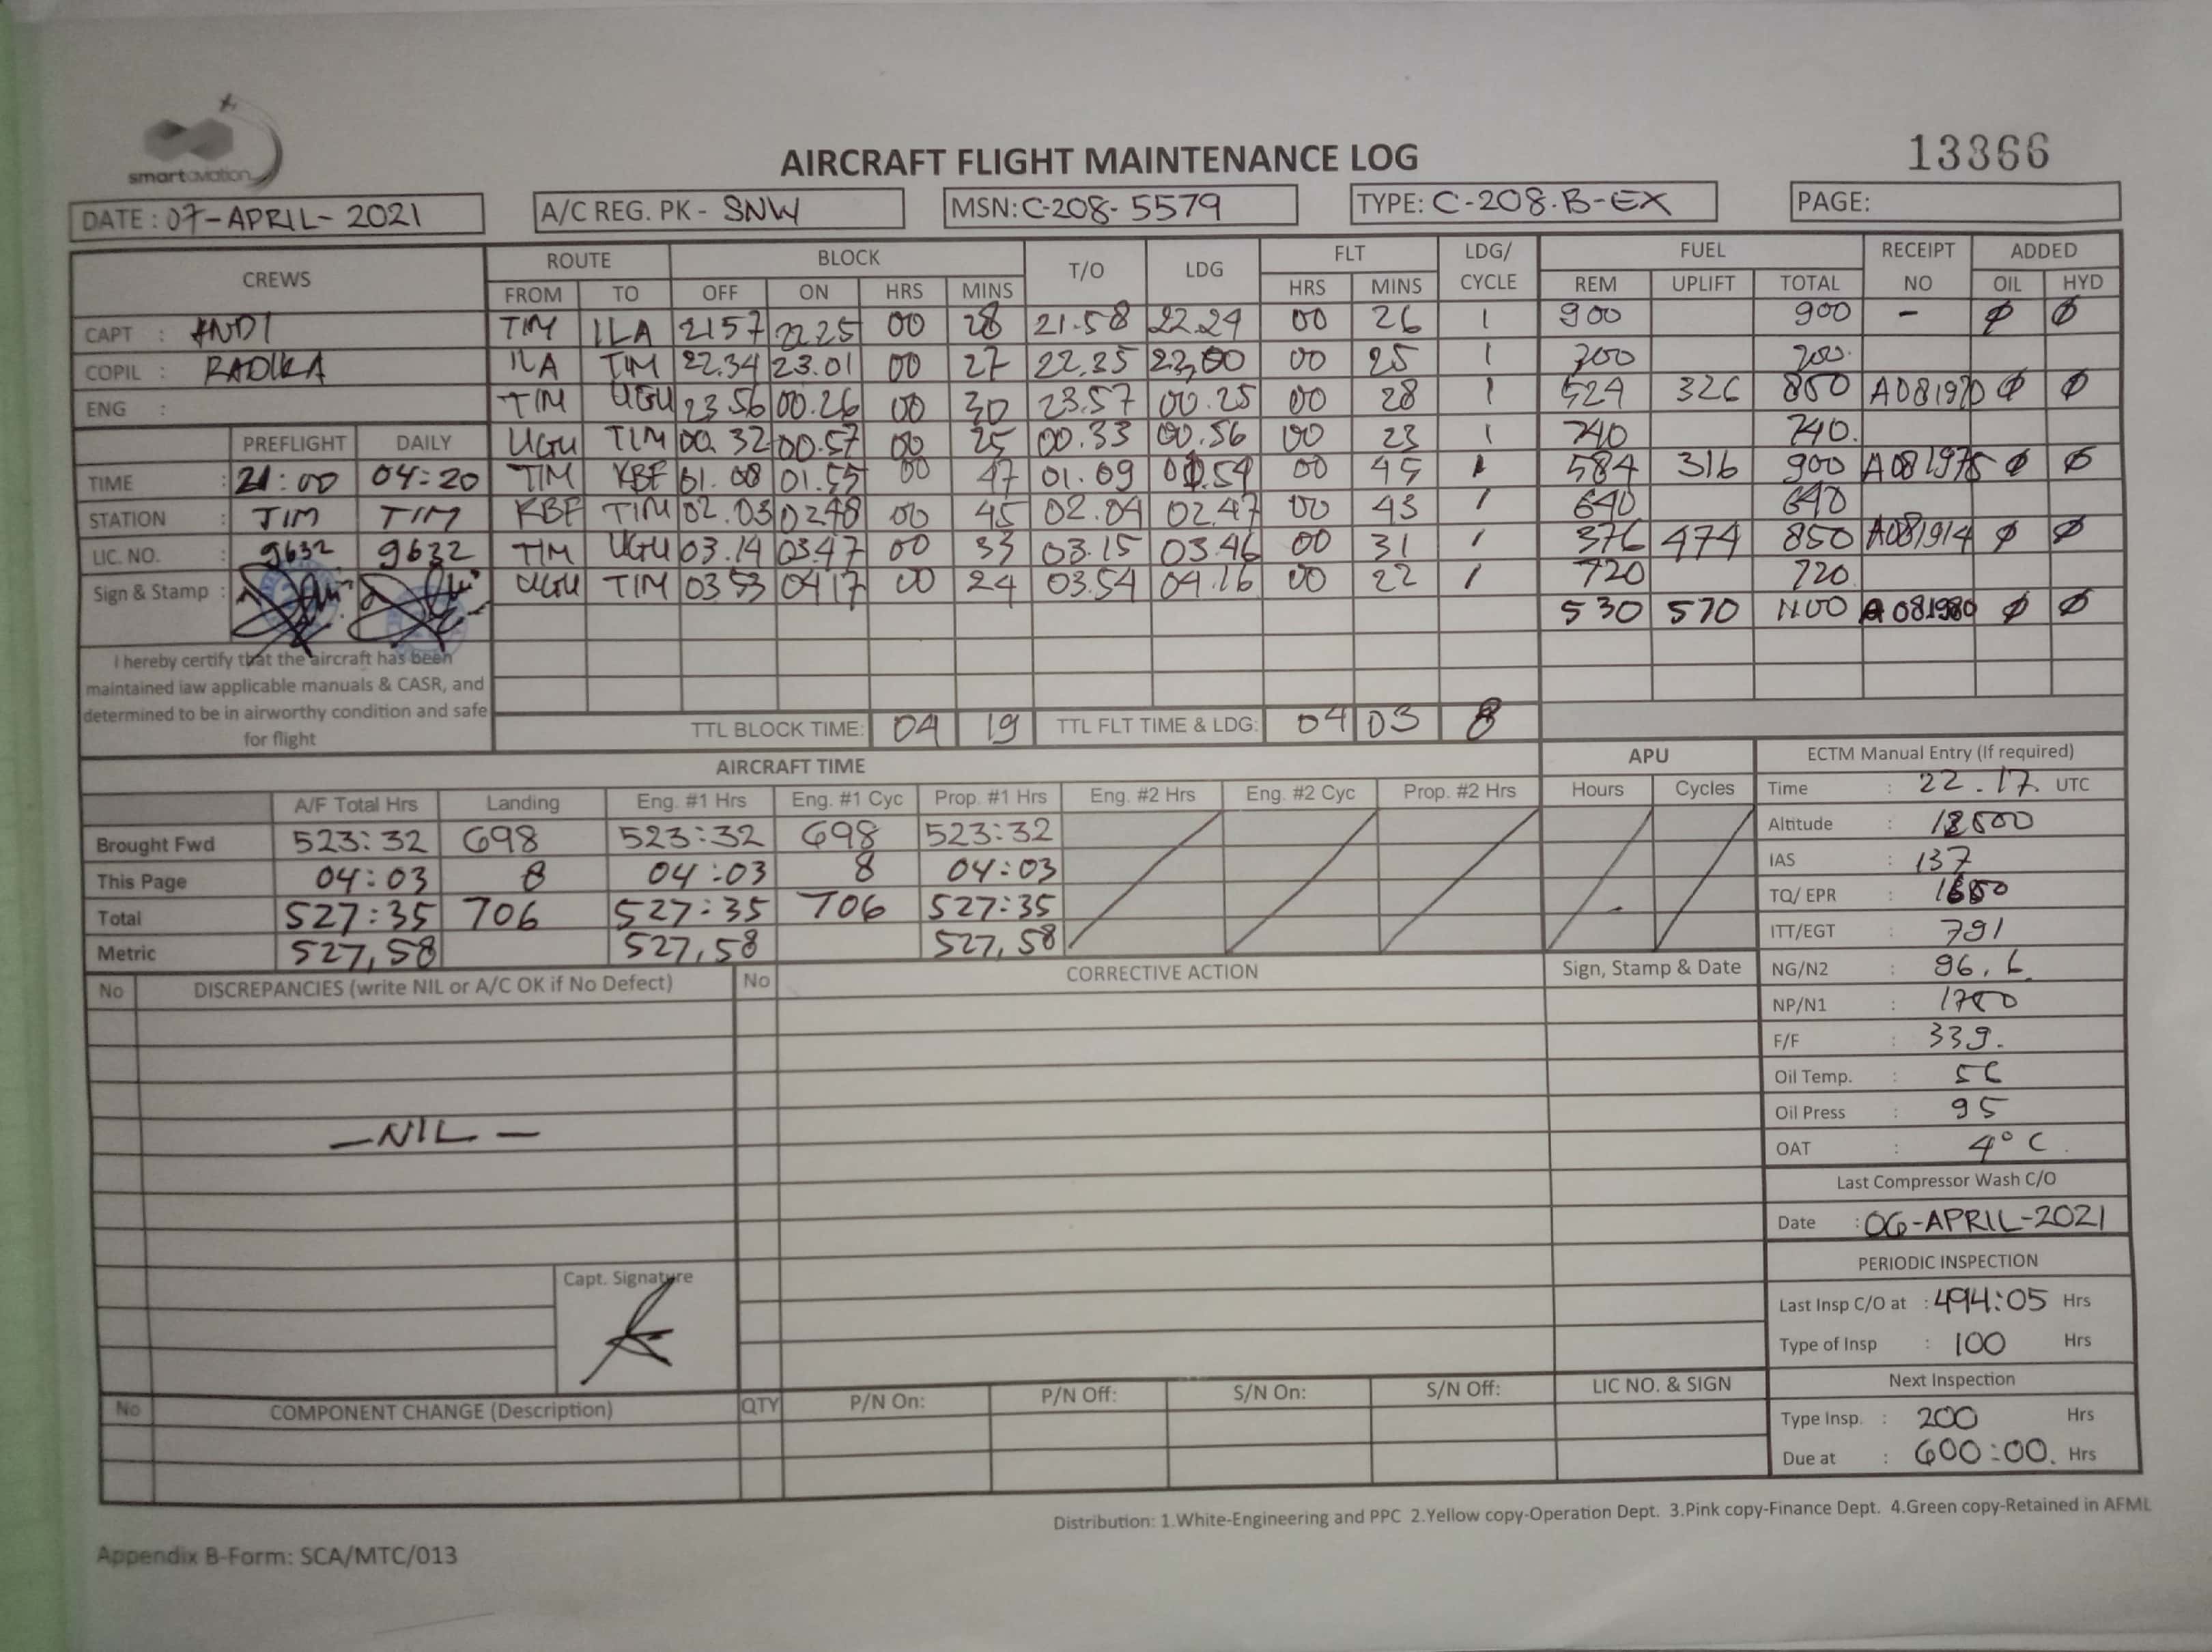 smartaviation
13366
AIRCRAFT FLIGHT MAINTENANCE LOG
DATE : 07-APRIL-2021 A/C REG. PK - SNW MSN: C-208- 5579 TYPE: C-208.B-EX PAGE:
CREWS ROUTE BLOCK T/O LDG FLT LDG/ CYCLE FUEL RECEIPT NO ADDED
FROM TO OFF ON HRS MINS HRS MINS REM UPLIFT TOTAL OIL HYD
CAPT : ANDI TIM ILA 2157 22.25 00 28 21.58 22.24 00 26 1 900 900 - Ø Ø
COPIL : RADIKA ILA TIM 22.34 23.01 00 27 22.35 23.00 00 25 1 700 700.
ENG : TIM UGU 23.56 00.26 00 30 23.57 00.25 00 28 1 524 326 850 A081970 Ø Ø
PREFLIGHT DAILY UGU TIM 00.32 00.57 00 25 00.33 00.56 00 23 1 740 740.
TIME : 21:00 04:20 TIM KBF 01.08 01.55 00 47 01.09 01.54 00 45 1 584 316 900 A081975 Ø Ø
STATION : TIM TIM KBF TIM 02.03 02.48 00 45 02.04 02.47 00 43 1 640 640
LIC. NO. : 9632 9632 TIM UGU 03.14 03.47 00 33 03.15 03.46 00 31 1 376 474 850 A081914 Ø Ø
Sign & Stamp : UGU TIM 03.53 0417 00 24 03.54 04.16 00 22 1 720 720
530 570 1100 A081980 Ø Ø
I hereby certify that the aircraft has been
maintained iaw applicable manuals & CASR, and
determined to be in airworthy condition and safe
for flight
TTL BLOCK TIME: 04 19 TTL FLT TIME & LDG: 04 03 8
AIRCRAFT TIME APU ECTM Manual Entry (If required)
A/F Total Hrs Landing Eng. #1 Hrs Eng. #1 Cyc Prop. #1 Hrs Eng. #2 Hrs Eng. #2 Cyc Prop. #2 Hrs Hours Cycles Time : 22.17 UTC
Brought Fwd 523:32 698 523:32 698 523:32 Altitude : 12500
This Page 04:03 8 04:03 8 04:03 IAS : 137
Total 527:35 706 527:35 706 527:35 TQ/ EPR :
Metric 527,58 527,58 527,58 ITT/EGT : 791
No DISCREPANCIES (write NIL or A/C OK if No Defect) No CORRECTIVE ACTION Sign, Stamp & Date NG/N2 : 96.6
NP/N1 : 1700
F/F : 339.
Oil Temp. : 56
Oil Press : 95
—NIL— OAT : 4°C
Last Compressor Wash C/O
Date : 06-APRIL-2021
PERIODIC INSPECTION
Capt. Signature
Last Insp C/O at : 494:05 Hrs
Type of Insp : 100 Hrs
Next Inspection
No COMPONENT CHANGE (Description) QTY P/N On: P/N Off: S/N On: S/N Off: LIC NO. & SIGN
Type Insp. : 200 Hrs
Due at : 600:00. Hrs
Distribution: 1.White-Engineering and PPC 2.Yellow copy-Operation Dept. 3.Pink copy-Finance Dept. 4.Green copy-Retained in AFML
Appendix B-Form: SCA/MTC/013